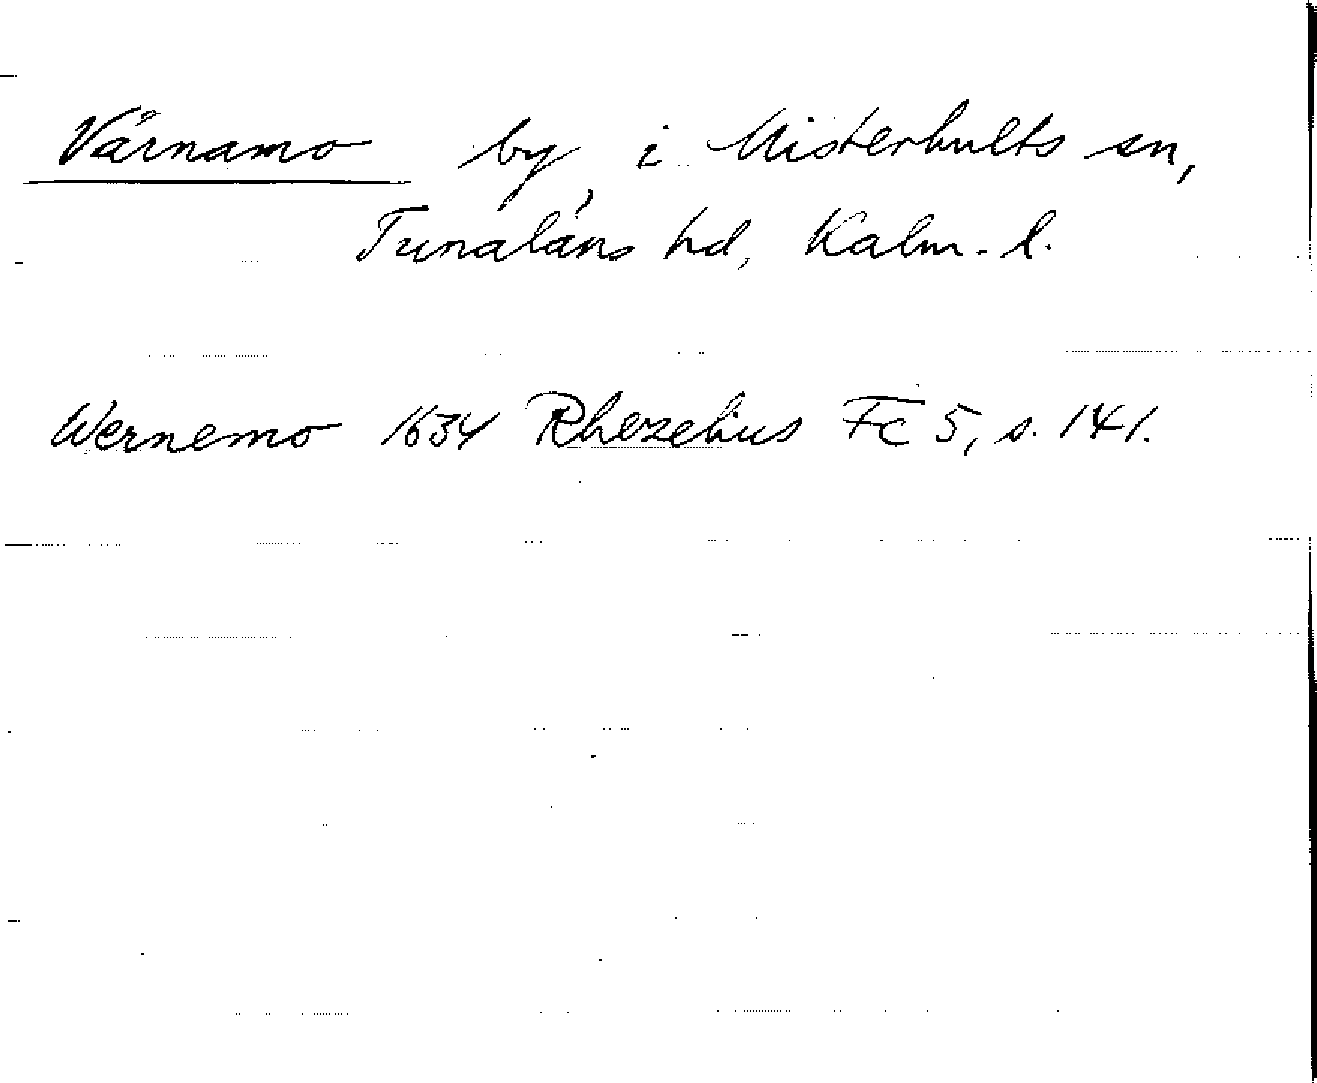 Värnamo by, i Misterhults sn,
Tunaläns hd, Kalm. l.
Wernemo 1634 Rhezelius Fc 5, s. 141.